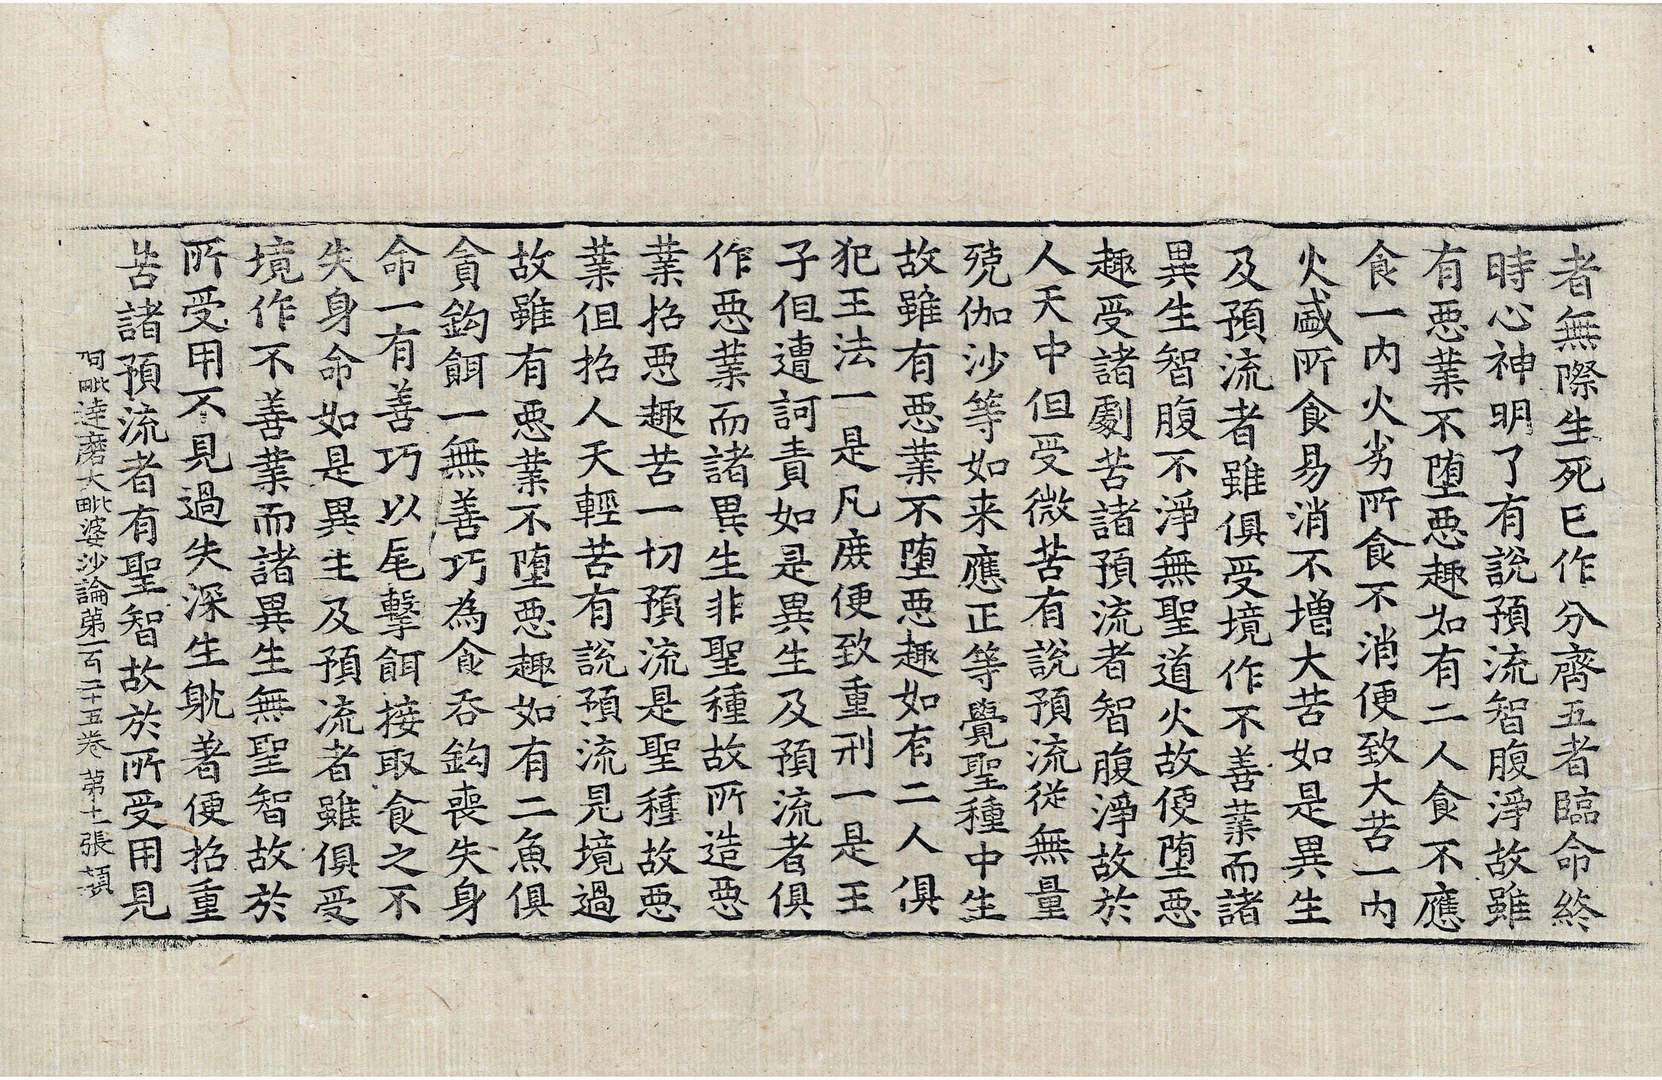 者無際生死已作分齊五者臨命終
時心神明了有說預流智腹淨故雖
有惡業不墮惡趣如有二人食不應
食一內火劣所食不消便致大苦一內
火盛所食易消不增大苦如是異生
及預流者雖俱受境作不善業而諸
異生智腹不淨無聖道火故便墮惡
趣受諸劇苦諸預流者智腹淨故於
人天中但受微苦有說預流從無量
殑伽沙等如来應正等覺聖種中生
故雖有惡業不墮惡趣如有二人俱
犯王法一是凡庶便致重刑一是王
子但遭訶責如是異生及預流者俱
作惡業而諸異生非聖種故所造惡
業招惡趣苦一切預流是聖種故惡
業但招人天輕苦有說預流見境過
故雖有惡業不墮惡趣如有二魚俱
貪鈎餌一無善巧為食吞鈎喪失身
命一有善巧以尾擊餌接取食之不
失身命如是異生及預流者雖俱受
境作不善業而諸異生無聖智故於
所受用不見過失深生躭著便招重
苦諸預流者有聖智故於所受用見
毗達磨大毗婆沙論第一百二十五卷 第十張